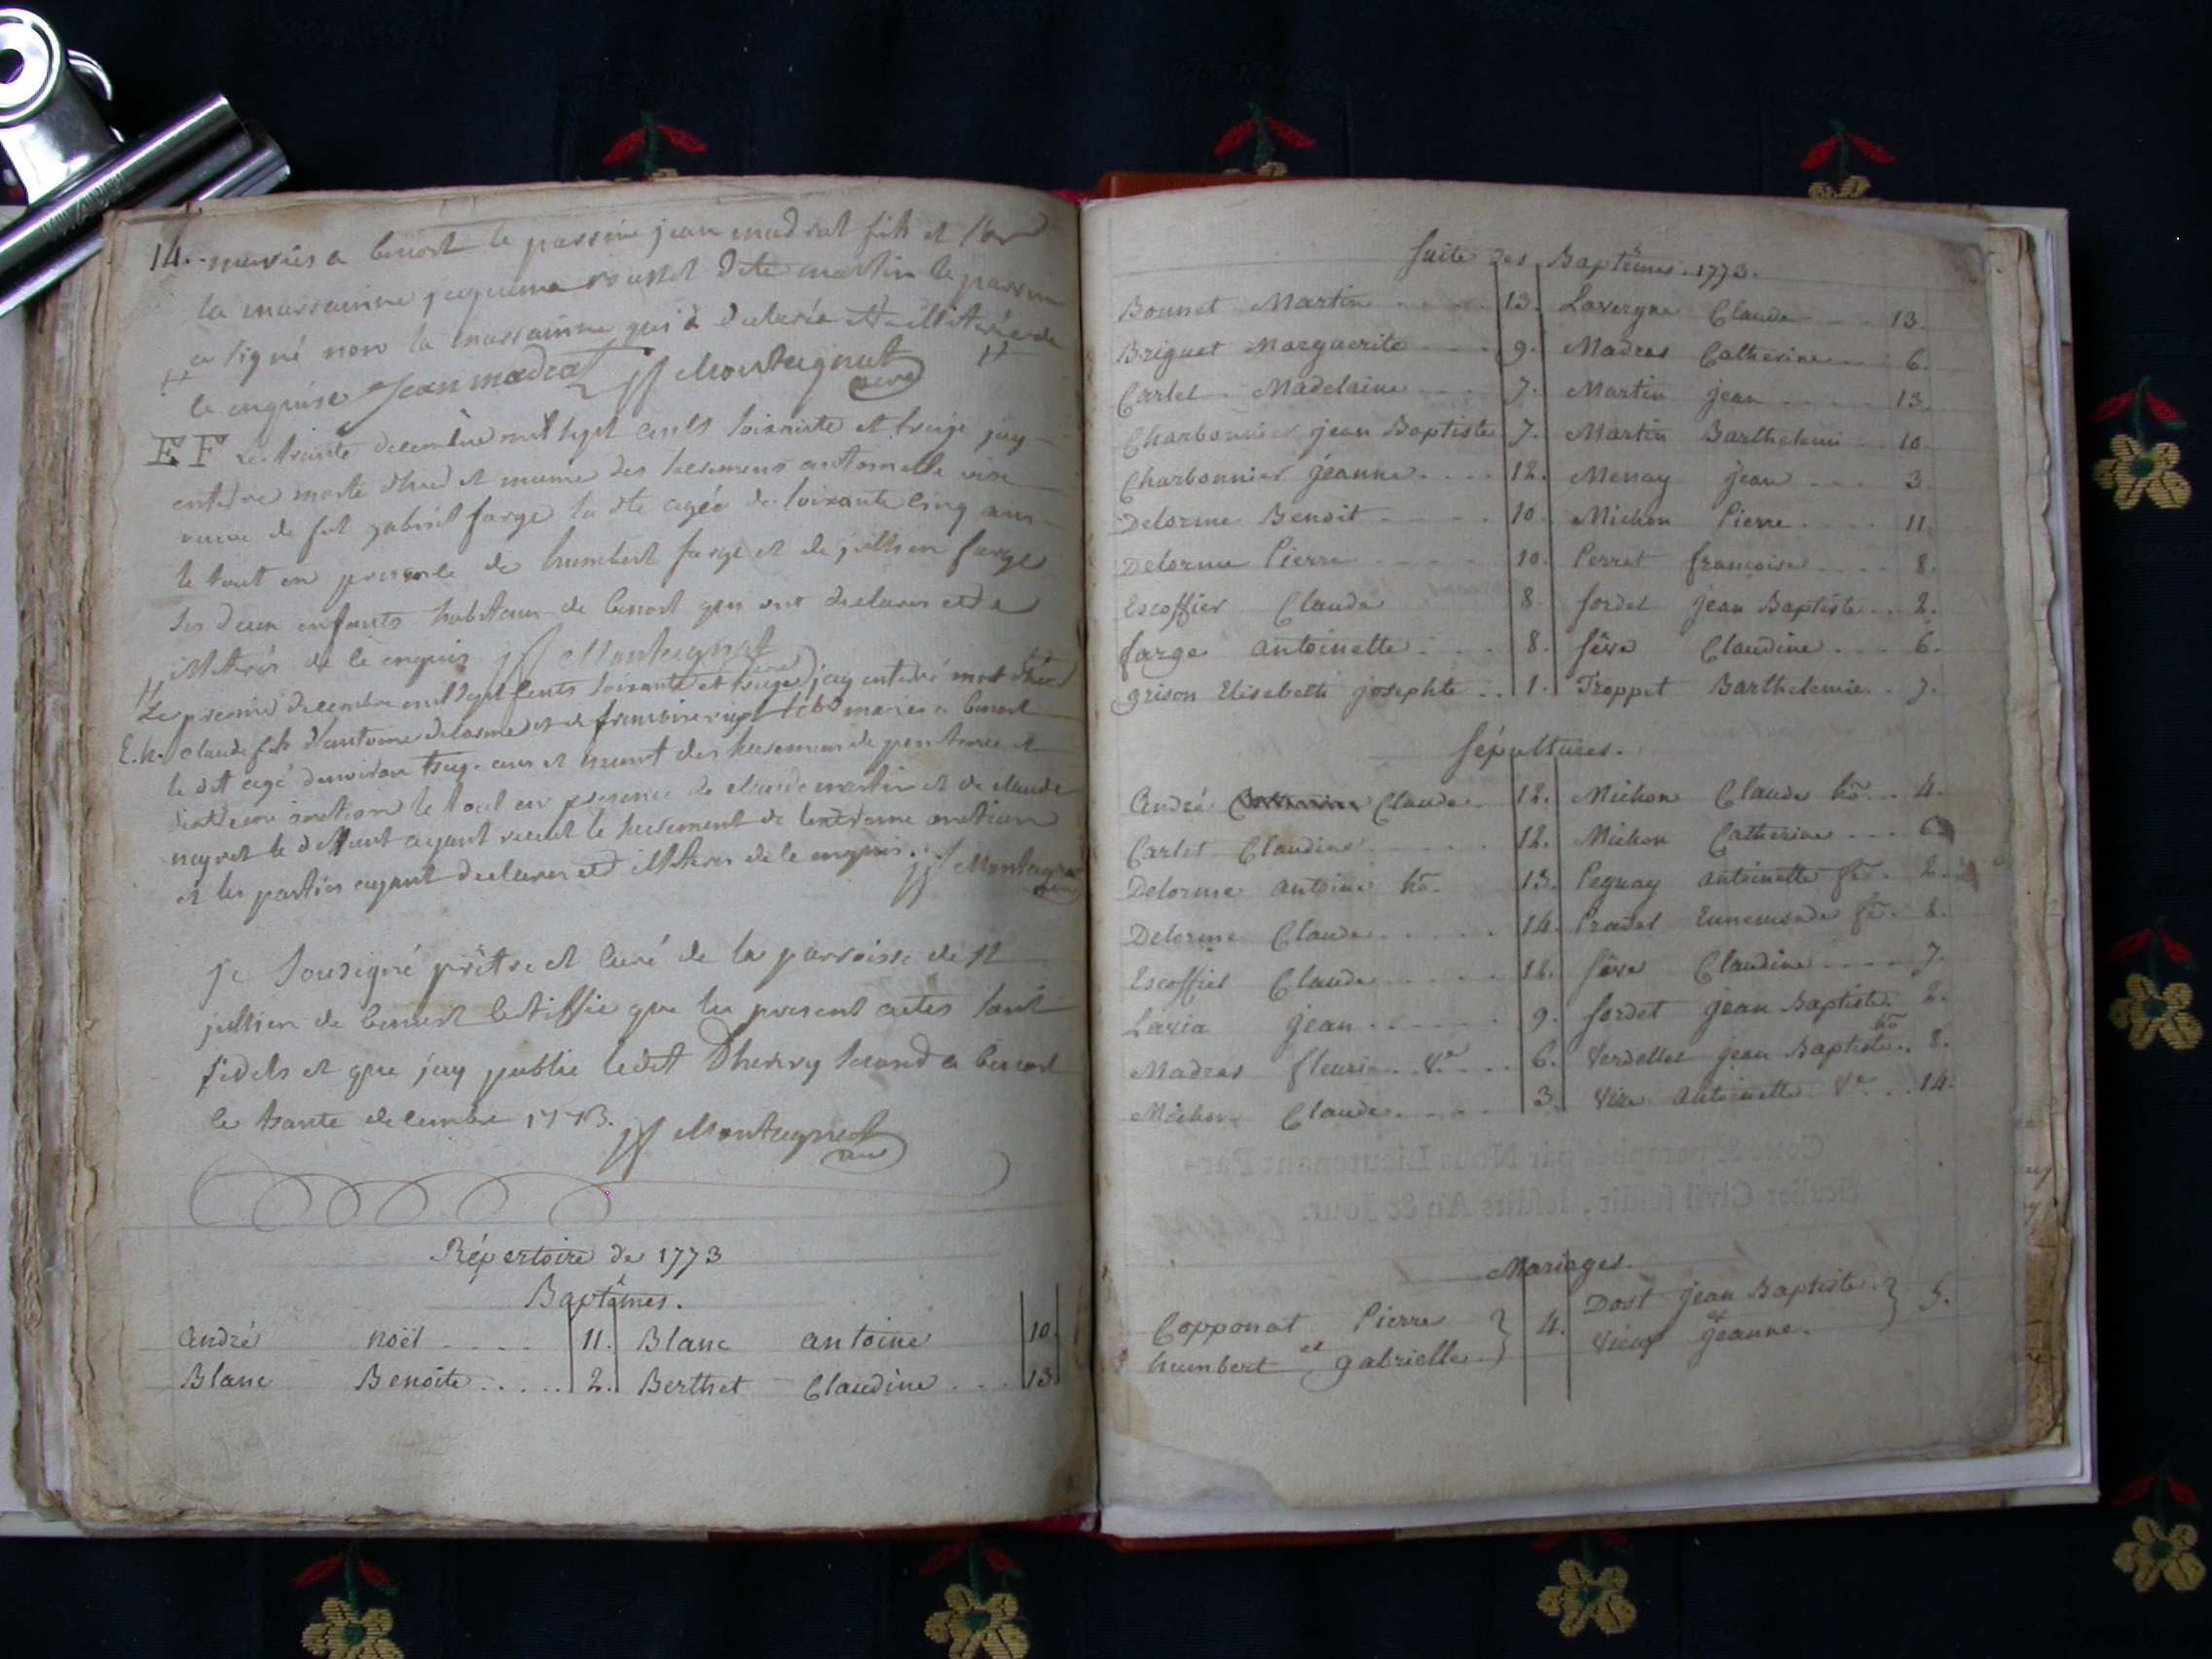 14. mariés a benost le parrin jean madrat fils et
la marrainne jaquema roussel dite martin le parrin
a signé non la marrainne qui a declarée illiterée de
le enquise Jean madrat jf Montagnat
curé
E F Le trante decembre mil sept cents soixante et treize jay
enterré morte d'hier et munie des sacremens antoinette vire
veuve de fut gabriel farge la dte agée de soixante cinq ans
le tout en presence de humbert farge et de jullien farge
ses deux enfants habitans de benost qui ont declarer etre
illiterés de le enquis jf Montagnat
curé
Le premier decembre mil sept cents soixante et treize jay enterré mort d'hier
E.h. claude fils d'antoine delorme et de mariés a benost
le dit agé d'environ treze ans et munit des sacremens de penitence et
d'extreme onction le tout en presence de claude martin et de claude
nayret le deffunt ayant receut le sacrement de lextreme onction
et les parties ayant declarer etre illiterer de le enquis. jf Montagnat
curé
je sousigné prêtre et curé de la parroisse de st
jullien de benost certiffie que les present actes sont
fidels et que jay publie ledit Dhenry second a benost
le trante decembre 1773. jf Montagnat
curé
Répertoire de 1773
Baptêmes.
André noël .... 11. Blanc antoine 10
Blanc Benoite ..... 2. Berthet Claudine ... 13
Suite des Baptêmes. 1773.
Bonnet Martin ..... 13. Lavergne Claude ... 13.
Briguet Marguerite .... 9. Madras Catherine ... 6.
Carlet Madelaine .... 7. Martin jean ..... 13.
Charbonnier jean Baptiste 7. Martin Barthelemi .. 10.
Charbonnier jeanne .... 12. Menay jean ... 3.
Delorme Benoit ..... 10. Michon Pierre .... 11.
Delorme Pierre ..... 10. Perret françoise .... 8.
Escoffier Claude 8. sordet jean Baptiste .. 2.
farge antoinette ... 8. sève Claudine ... 6.
grison Elisabeth josephte .. 1. Troppet Barthelemie . 7.
Sépultures.
André Claude .. 12. Michon Claude hō... 4.
Carlet Claudine ..... 12. Michon Catherine ... 6.
Delorme antoine hō. 13. Peguay antoinette fē. 2.
Delorme Claude ..... 14. Pradel Ennemonde fē. 2.
Escoffier Claude .... 12. sève Claudine .... 7.
Lavia jean ...... 9. sordet jean Baptiste. 2.
Madras fleurie .. Ve .... 6. Verdellet jean Baptiste hō.. 8.
Michon Claude ..... 3. Vire antoinette Ve ... 14.
Mariages.
Copponat Pierre } 4. Dost jean Baptiste. } 5.
et et
humbert gabrielle. Vieux jeanne.